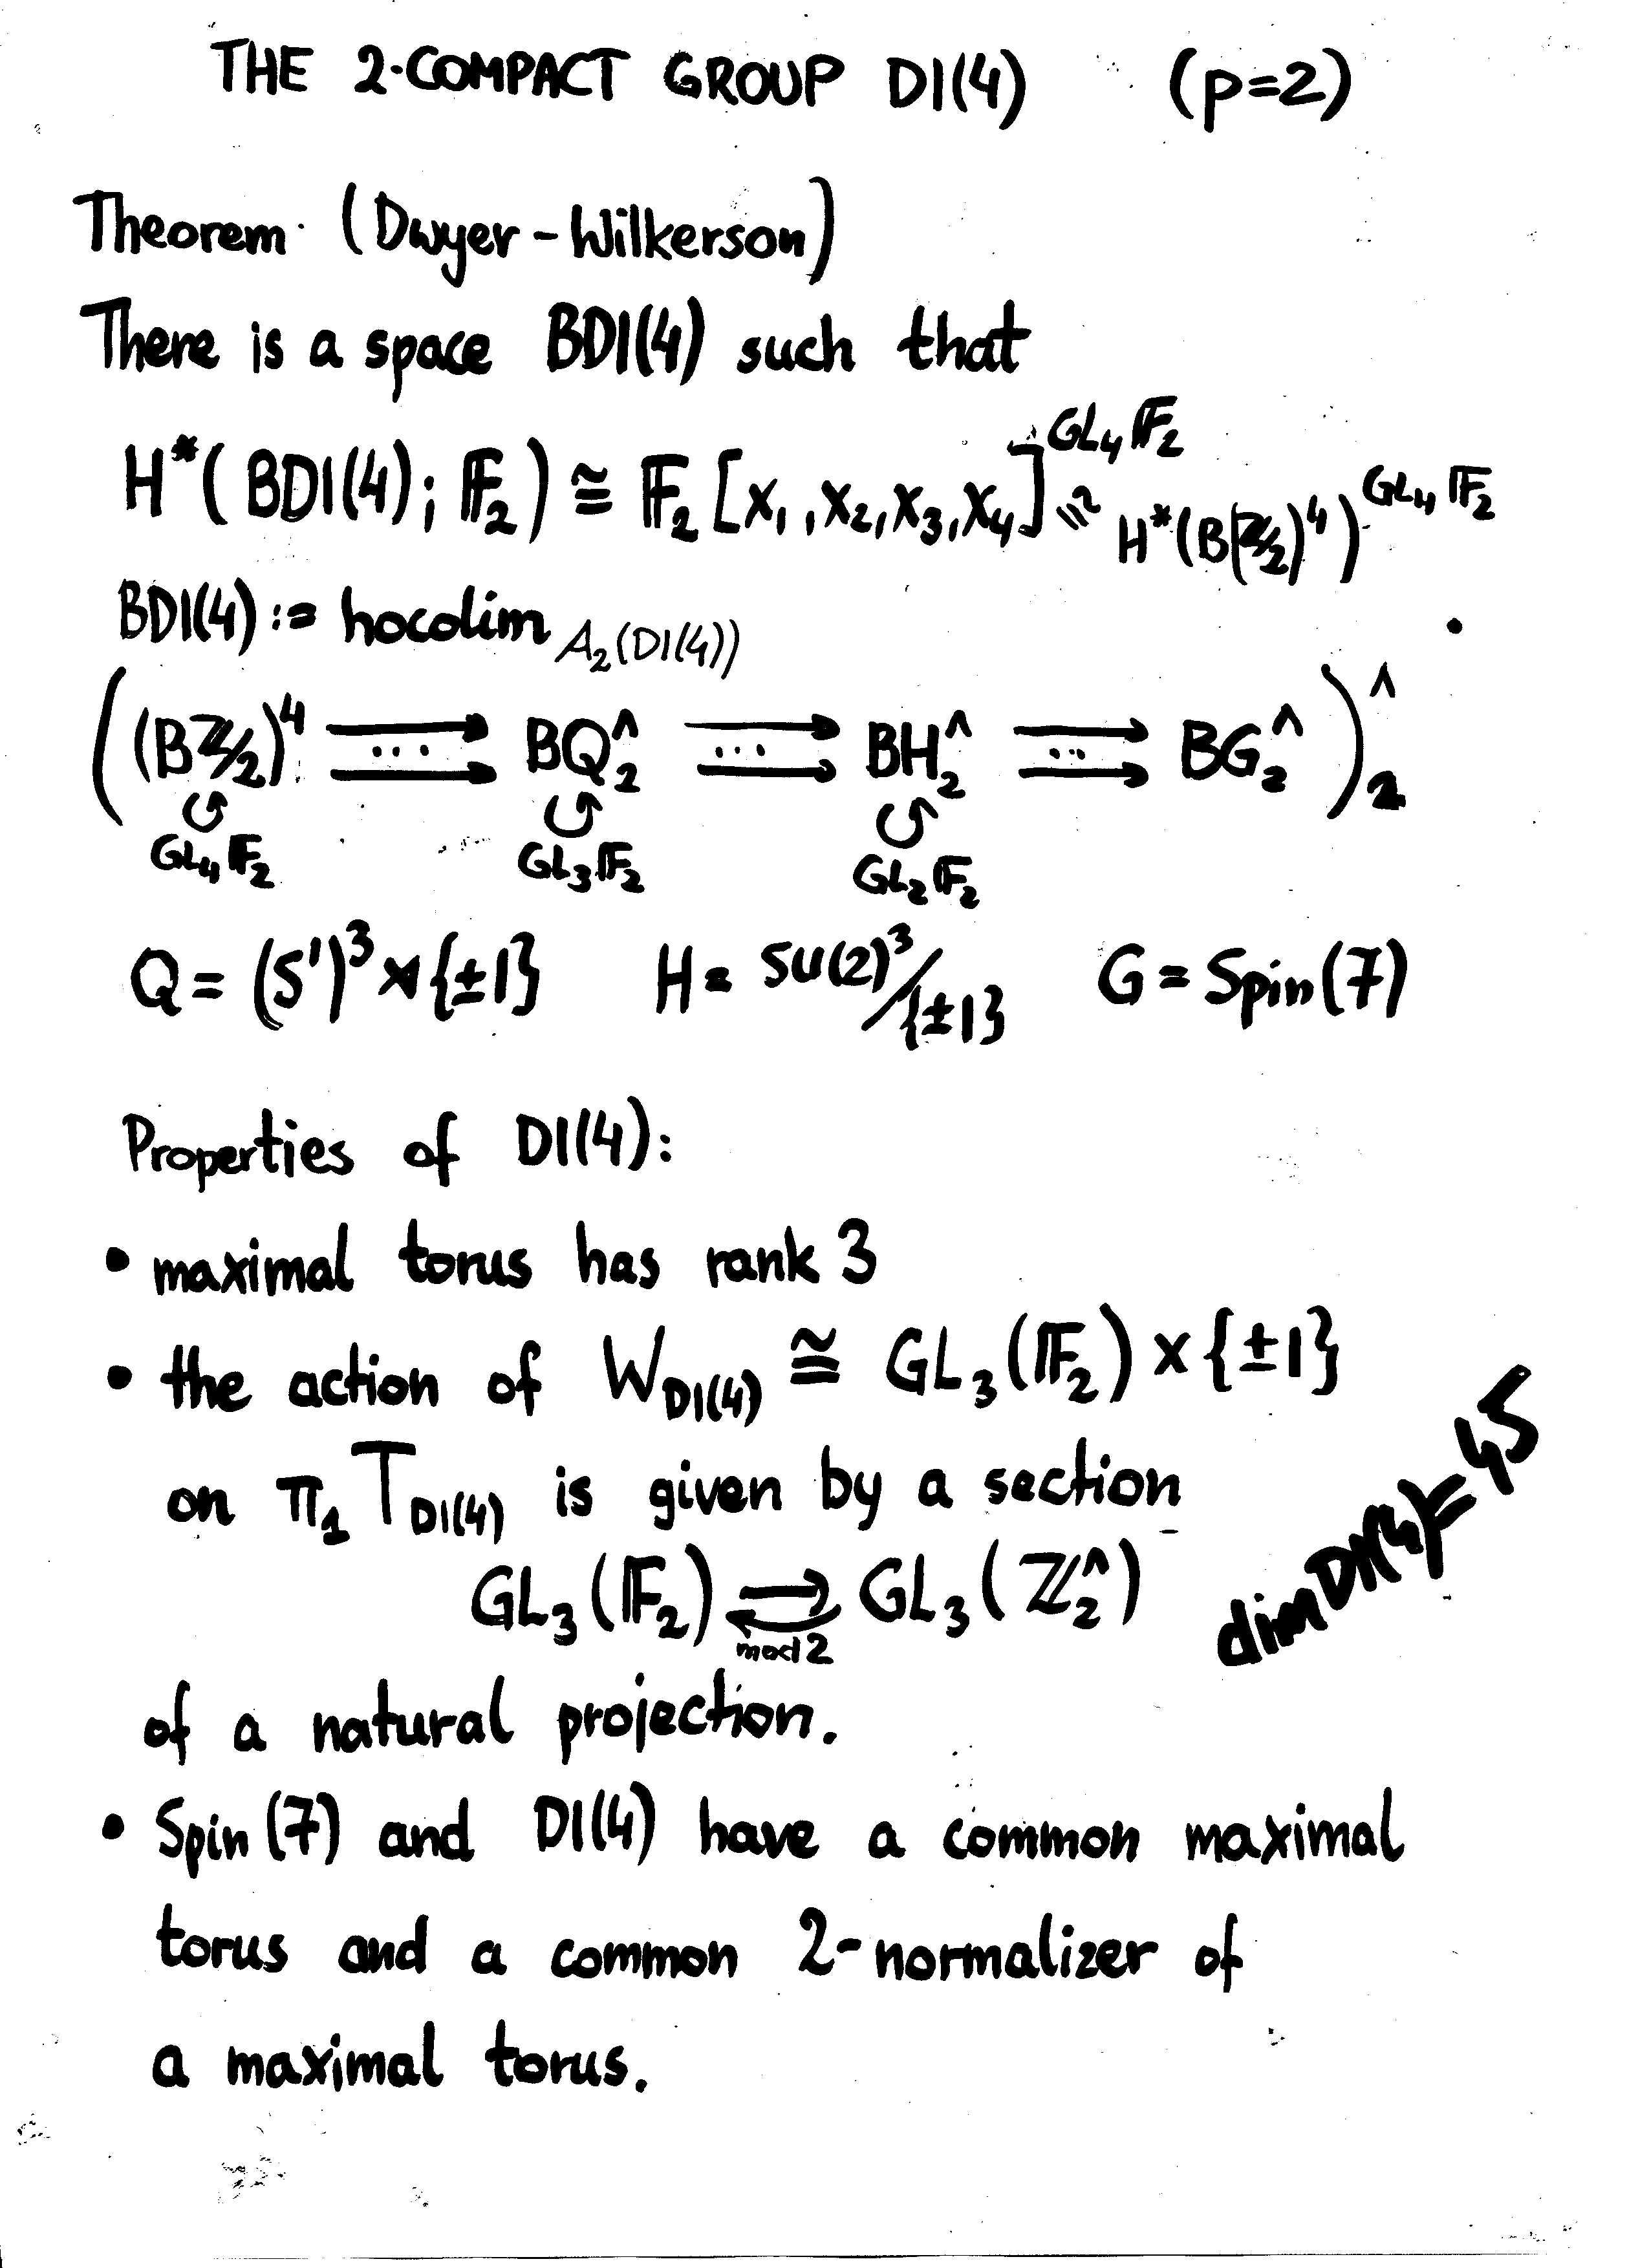 THE 2-COMPACT GROUP DI(4) (p=2)
Theorem (Dwyer-Wilkerson)
There is a space BDI(4) such that
H*(BDI(4); 𝔽₂) ≅ 𝔽₂[x₁,x₂,x₃,x₄]^{GL₄𝔽₂} ≅ H*(B(ℤ/2)⁴)^{GL₄𝔽₂}
BDI(4) := hocolim_{A₂(DI(4))}
((Bℤ/2)⁴ ⇉ ... BQ^₂ ⇉ ... BH^₂ ⇉ ... BG^₂)^₂
↺ ↺ ↺
GL₄𝔽₂ GL₃𝔽₂ GL₂𝔽₂
Q = (S¹)³ ⋊ {±1} H = SU(2)³/{±1} G = Spin(7)
Properties of DI(4):
• maximal torus has rank 3
• the action of W_{DI(4)} ≅ GL₃(𝔽₂) × {±1}
on π₁ T_{DI(4)} is given by a section
GL₃(𝔽₂) ⇄ GL₃(ℤ^₂)
mod 2
dim DI(4) = 45
of a natural projection.
• Spin(7) and DI(4) have a common maximal
torus and a common 2-normalizer of
a maximal torus.